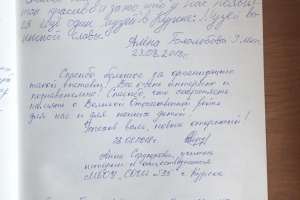 так красиво и за то, что у нас появил
ся ещё один музей в Курске: Музей во
инской Славы.
Алёна Гололобова 9 лет
23.08.2018г.
Спасибо большое за организацию
такой выставки! Все очень интересно и
познавательно! Спасибо, что сохраняете
память о Великой Отечественной войне
для нас и для наших детей!
Успехов вам, новых открытий!
23.08.2018г.
Анна Сердюкова, учитель
истории и обществознания
МБОУ "СОШ г. Курска